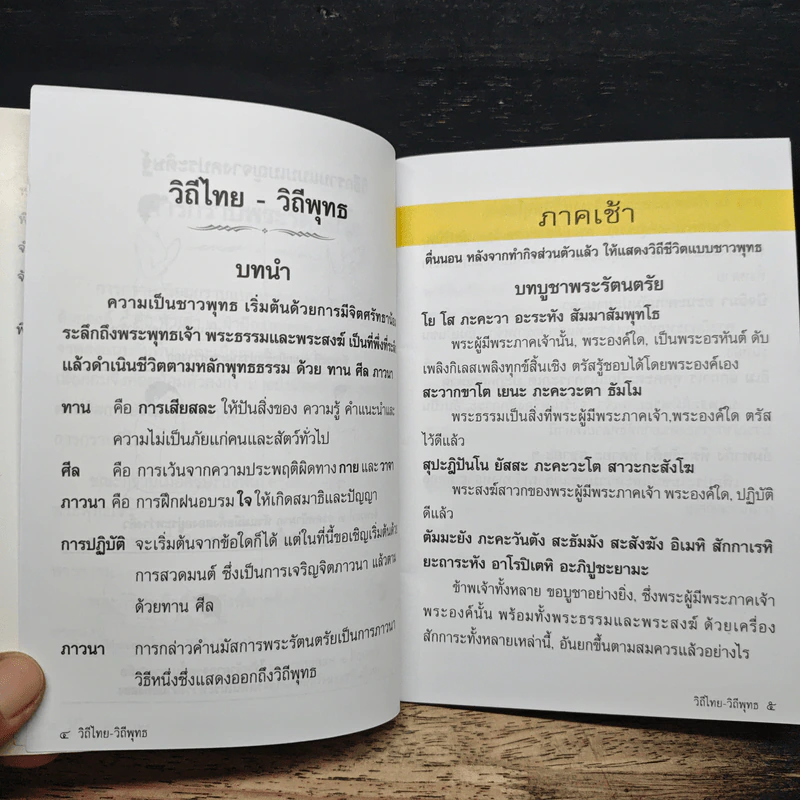 วิถีไทย - วิถีพุทธ
บทนำ
ความเป็นชาวพุทธ เริ่มต้นด้วยการมีจิตศรัทธา
ระลึกถึงพระพุทธเจ้า พระธรรมและพระสงฆ์ เป็นที่พึ่งที่
แล้วดำเนินชีวิตตามหลักพุทธธรรม ด้วย ทาน ศีล ภาวนา
ทาน คือ การเสียสละ ให้ปันสิ่งของ ความรู้ คำแนะนำและ
ความไม่เป็นภัยแก่คนและสัตว์ทั่วไป
ศีล คือ การเว้นจากความประพฤติผิดทาง กาย และ วาจา
ภาวนา คือ การฝึกฝนอบรม ใจ ให้เกิดสมาธิและปัญญา
การปฏิบัติ จะเริ่มต้นจากข้อใดก็ได้ แต่ในที่นี้ขอเชิญเริ่มต้นด้วย
การสวดมนต์ ซึ่งเป็นการเจริญจิตภาวนา แล้วตาม
ด้วยทาน ศีล
ภาวนา การกล่าวคำนมัสการพระรัตนตรัยเป็นการภาวนา
วิธีหนึ่งซึ่งแสดงออกถึงวิถีพุทธ
๔ วิถีไทย-วิถีพุทธ
ภาคเช้า
ตื่นนอน หลังจากทำกิจส่วนตัวแล้ว ให้แสดงวิถีชีวิตแบบชาวพุทธ
บทบูชาพระรัตนตรัย
โย โส ภะคะวา อะระหัง สัมมาสัมพุทโธ
พระผู้มีพระภาคเจ้านั้น, พระองค์ใด, เป็นพระอรหันต์ ดับ
เพลิงกิเลสเพลิงทุกข์สิ้นเชิง ตรัสรู้ชอบได้โดยพระองค์เอง
สะวากขาโต เยนะ ภะคะวะตา ธัมโม
พระธรรมเป็นสิ่งที่พระผู้มีพระภาคเจ้า,พระองค์ใด ตรัส
ไว้ดีแล้ว
สุปะฏิปันโน ยัสสะ ภะคะวะโต สาวะกะสังโฆ
พระสงฆ์สาวกของพระผู้มีพระภาคเจ้า พระองค์ใด, ปฏิบัติ
ดีแล้ว
ตัมมะยัง ภะคะวันตัง สะธัมมัง สะสังฆัง อิเมหิ สักกาเรหิ
ยะถาระหัง อาโรปิเตหิ อะภิปูชะยามะ
ข้าพเจ้าทั้งหลาย ขอบูชาอย่างยิ่ง, ซึ่งพระผู้มีพระภาคเจ้า
พระองค์นั้น พร้อมทั้งพระธรรมและพระสงฆ์ ด้วยเครื่อง
สักการะทั้งหลายเหล่านี้, อันยกขึ้นตามสมควรแล้วอย่างไร
วิถีไทย-วิถีพุทธ ๕